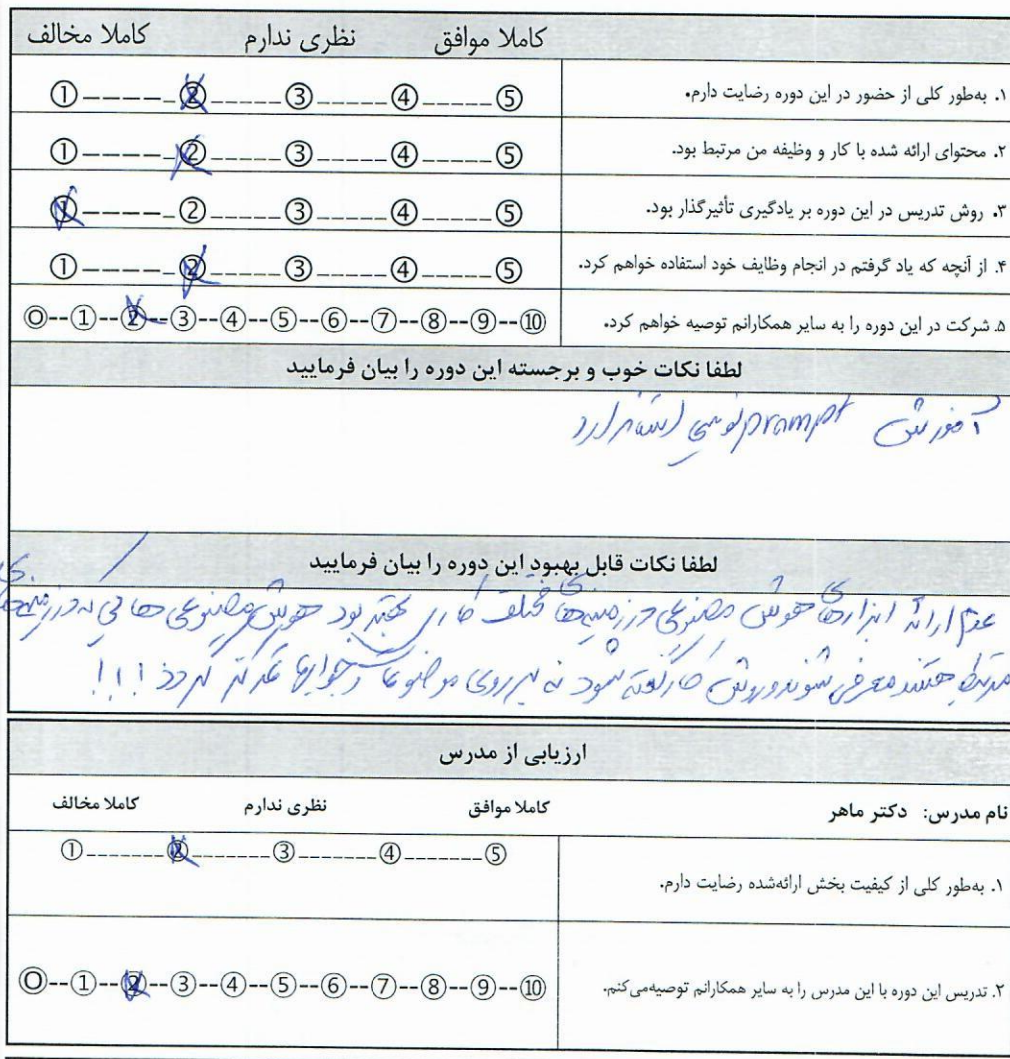 کاملا موافق نظری ندارم کاملا مخالف
۱. به‌طور کلی از حضور در این دوره رضایت دارم. ①-----②-----③-----④-----⑤
۲. محتوای ارائه شده با کار و وظیفه من مرتبط بود. ①-----②-----③-----④-----⑤
۳. روش تدریس در این دوره بر یادگیری تأثیرگذار بود. ①-----②-----③-----④-----⑤
۴. از آنچه که یاد گرفتم در انجام وظایف خود استفاده خواهم کرد. ①-----②-----③-----④-----⑤
۵. شرکت در این دوره را به سایر همکارانم توصیه خواهم کرد. ⓪--①--②--③--④--⑤--⑥--⑦--⑧--⑨--⑩
لطفا نکات خوب و برجسته این دوره را بیان فرمایید
آموزش prampt نویسی استاندارد
لطفا نکات قابل بهبود این دوره را بیان فرمایید
عدم ارائه ابزارهای هوش مصنوعی در زمینه‌های مختلف کاری بهتر بود هوش مصنوعی هایی که در زمینه‌های
مرتبط هستند معرفی شوند و روش کار گفته شود نه بر روی موضوعات و جوابها تمرکز گردد!!!
ارزیابی از مدرس
نام مدرس: دکتر ماهر کاملا موافق نظری ندارم کاملا مخالف
۱. به‌طور کلی از کیفیت بخش ارائه‌شده رضایت دارم. ①-------②-------③-------④-------⑤
۲. تدریس این دوره با این مدرس را به سایر همکارانم توصیه‌می‌کنم. ⓪--①--②--③--④--⑤--⑥--⑦--⑧--⑨--⑩